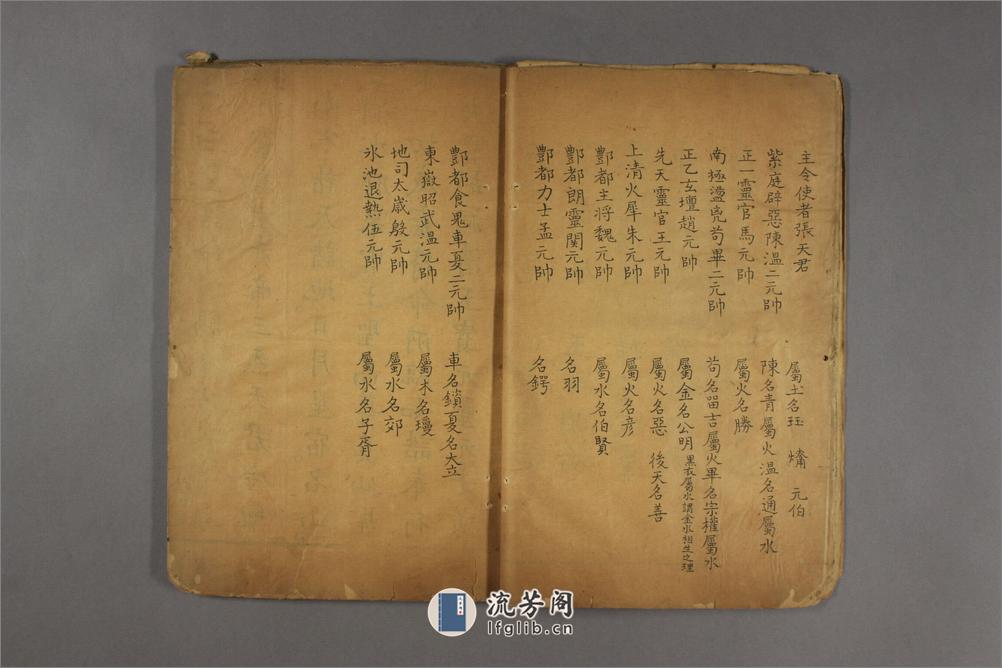 主令使者張天君 屬土名珏 燆 元伯
紫庭辟惡陳溫二元帥 陳名青屬火溫名通屬水
正一靈官馬元帥 屬火名勝
南極盪兇苟畢二元帥 苟名留吉屬火畢名宗權屬水
正乙玄壇趙元帥 屬金名公明黑衣屬水謂金水相生之理
先天靈官王元帥 屬火名惡 後天名善
上清火犀朱元帥 屬火名彦
酆都主將魏元帥 屬水名伯賢
酆都朗靈関元帥 名羽
酆都力士孟元帥 名鍔
酆都食鬼車夏二元帥 車名鎖夏名大立
東嶽昭武溫元帥 屬木名瓊
地司太歲殷元帥 屬水名郊
氷池退熱伍元帥 屬水名子胥
流芳阁
lfglib.cn